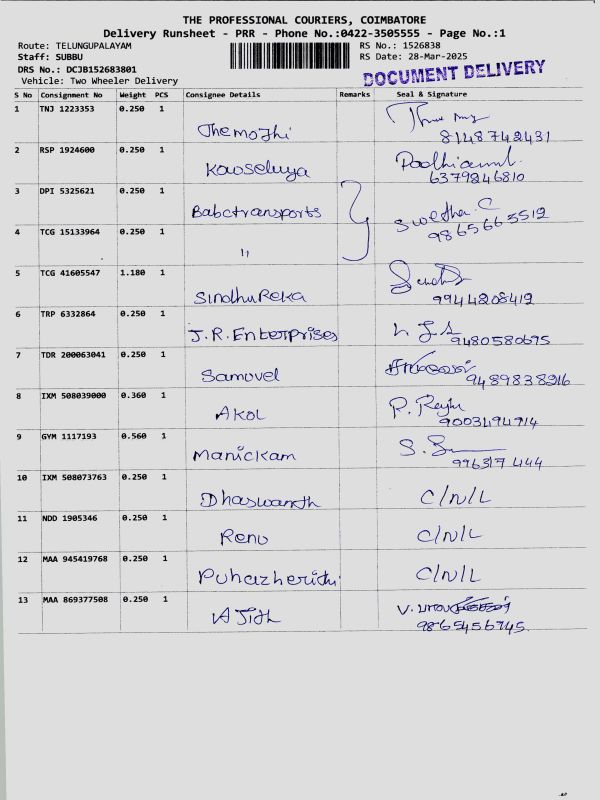 THE PROFESSIONAL COURIERS, COIMBATORE
Delivery Runsheet - PRR - Phone No.:0422-3505555 - Page No.:1
Route: TELUNGUPALAYAM
RS No.: 1526838
Staff: SUBBU
RS Date: 28-Mar-2025
DRS No.: DCJB152683801
DOCUMENT DELIVERY
Vehicle: Two Wheeler Delivery
S No Consignment No Weight PCS Consignee Details Remarks Seal & Signature
1 TNJ 1223353 0.250 1
Themozhi 8148742431
2 RSP 1924600 0.250 1
Kowseluya 6379846810
3 DPI 5325621 0.250 1
Babctransports Swetha.C
9865665512
4 TCG 15133964 0.250 1
"
5 TCG 41605547 1.180 1
Sindhu Reka 9944208412
6 TRP 6332864 0.250 1
J.R.Enterprises 9480580695
7 TDR 200063041 0.250 1
Samuvel 9489838216
8 IXM 508039000 0.360 1
Akol P. Raju
9003494914
9 GYM 1117193 0.560 1
Manickam 996317444
10 IXM 508073763 0.250 1
Dhaswanth C/N/L
11 NDD 1905346 0.250 1
Renu C/N/L
12 MAA 945419768 0.250 1
C/N/L
13 MAA 869377508 0.250 1
AJith 9865456745